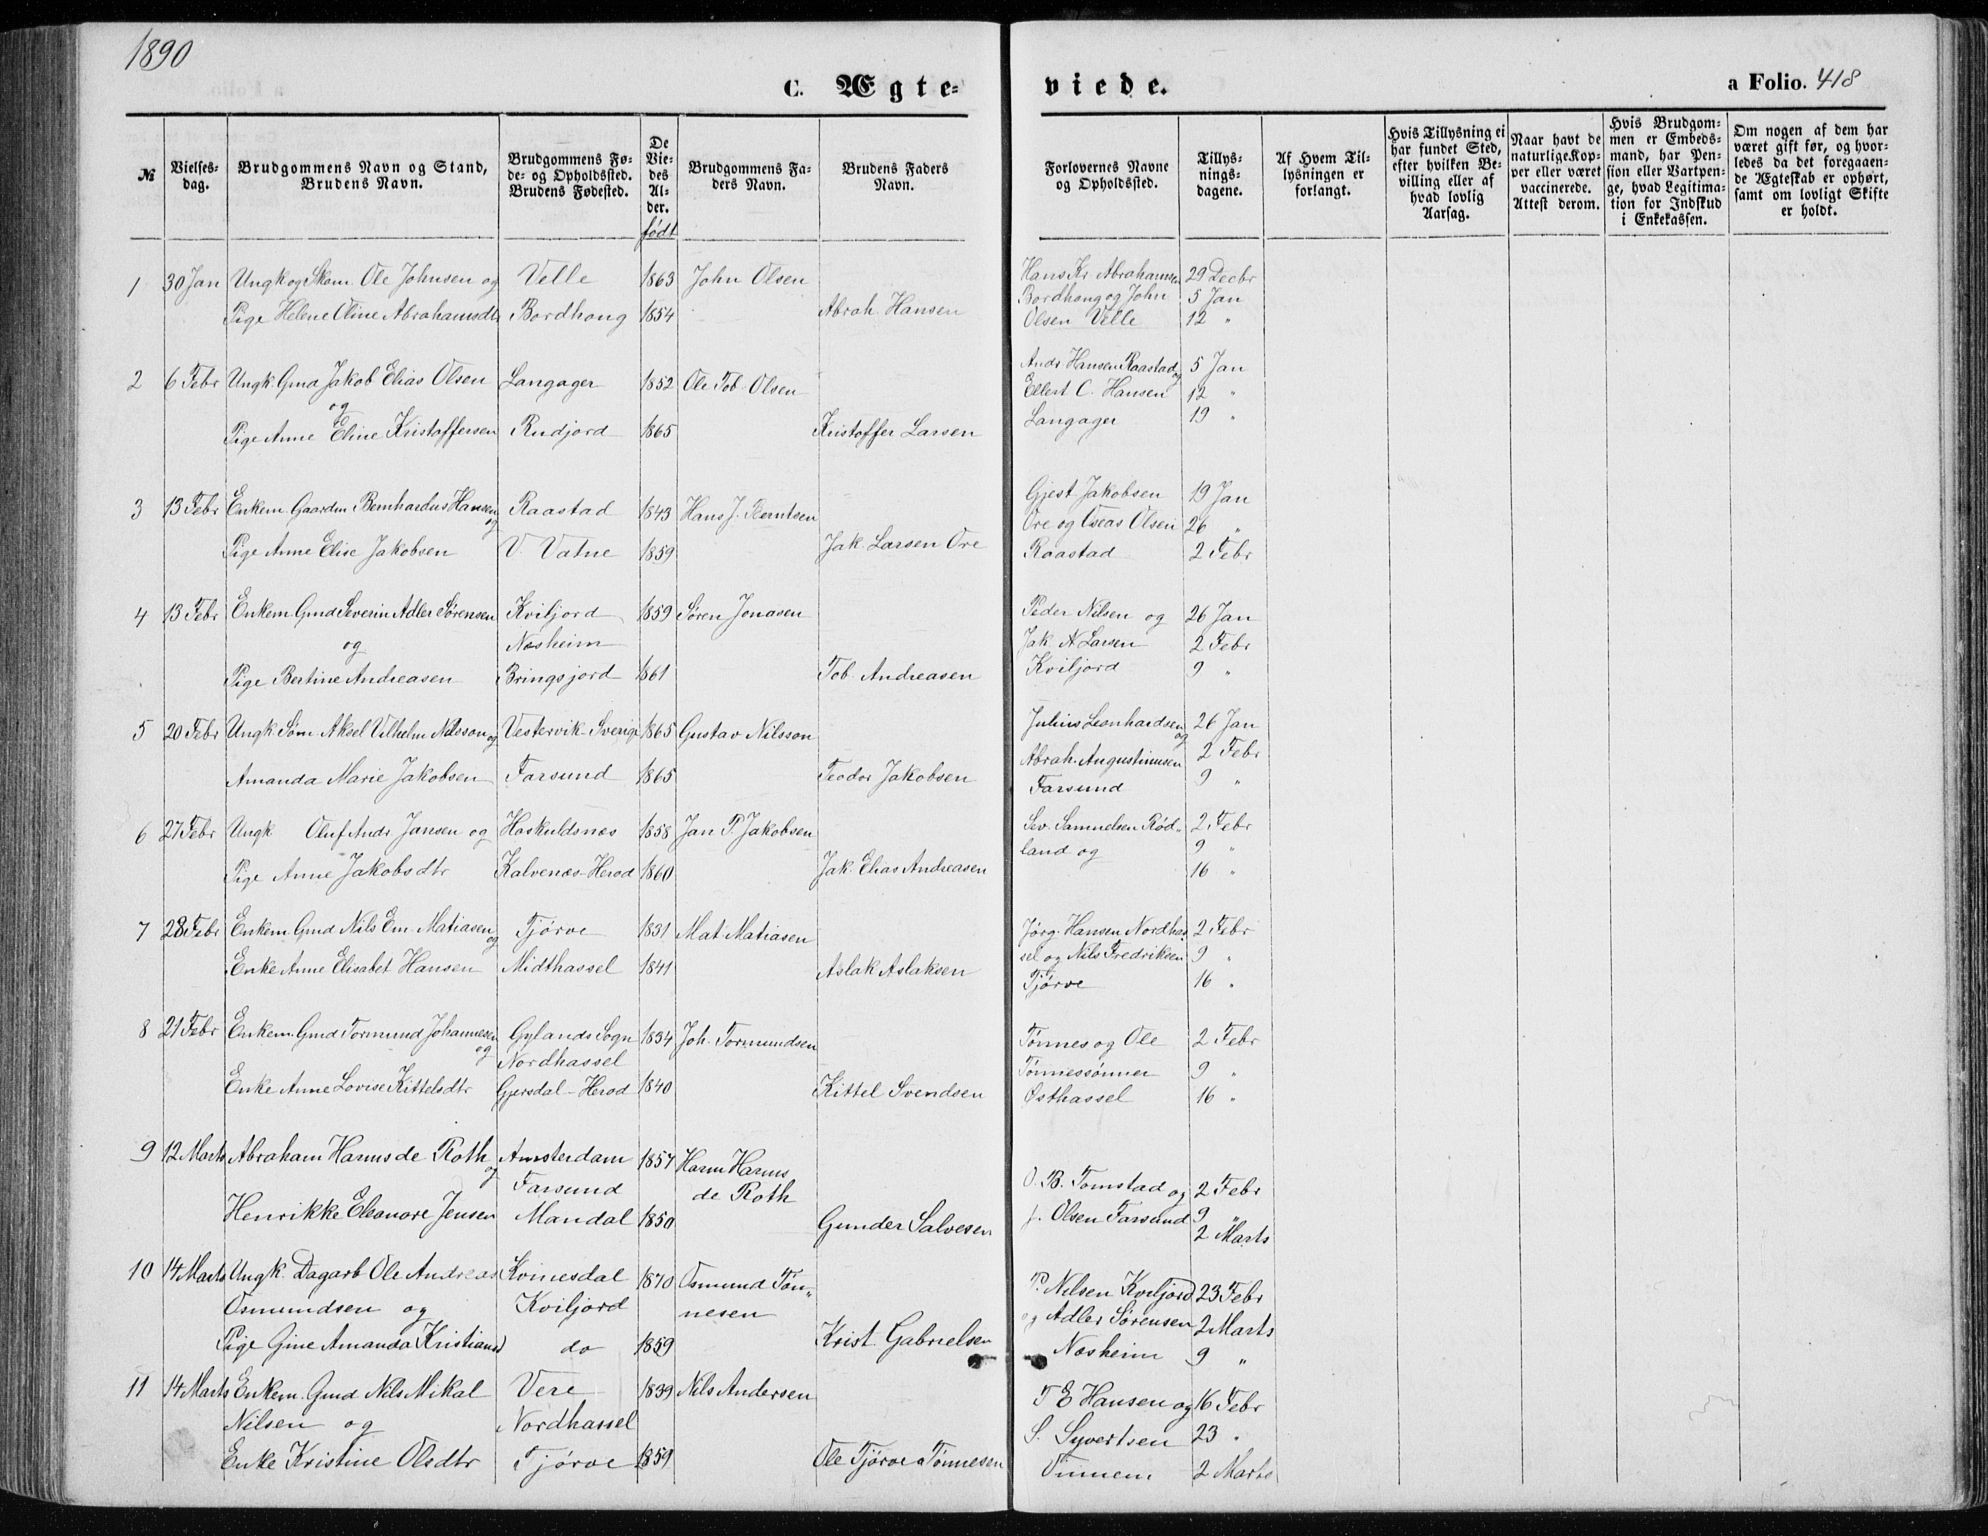 1890
C. Ægte-
viede.
a Folio. 418
№
Vielses-
dag.
Brudgommens Navn og Stand,
Brudens Navn.
Brudgommens Fø-
de- og Opholdssted.
Brudens Fødested.
De
Vie-
des
Al-
der.
født
Brudgommens Fa-
ders Navn.
Brudens Faders
Navn.
Forlovernes Navne
og Opholdssted.
Tillys-
nings-
dagene.
Af Hvem Til-
lysningen er
forlangt.
Hvis Tillysning ei
har fundet Sted,
efter hvilken Be-
villing eller af
hvad lovlig
Aarsag.
Naar havt de
naturlige Kop-
per eller været
vaccinerede.
Attest derom.
Hvis Brudgom-
men er Embeds-
mand, har Pen-
sion eller Vartpen-
ge, hvad Legitima-
tion for Indskud
i Enkekassen.
Om nogen af dem har
været gift før, og hvor-
ledes da det foregaaen-
de Ægteskab er ophørt,
samt om lovligt Skifte
er holdt.
1 30 Jan Ungk og Skom. Ole Johnsen og Velle 1863 John Olsen Hans Kr Abrahamsen 29 Decbr
Bordhoug og John 5 Jan
Pige Helene Oline Abrahamsdt Bordhoug 1854 Abrah. Hansen Olsen Velle 12 "
2 6 Febr Ungk. Gmd Jakob Elias Olsen Langager 1852 Ole Tob. Olsen Andr Hansen Raastad og 5 Jan
og Ellert C. Hansen 12 "
Pige Anne Eline Kristoffersen Rudjord 1865 Kristoffer Larsen Langager 19 "
3 13 Febr Enkem. Gaardm Bernhardus Hansen og Raastad 1843 Hans J. Berntsen Gjest Jakobsen 19 Jan
Ore og Oseas Olsen 26 "
Pige Anne Elise Jakobsen V. Vatne 1859 Jak. Larsen Ore Raastad 2 Febr
4 13 Febr Enkem. Gmd Severin Adler Sørensen Kviljord 1859 Søren Jonasen Peder Nilsen og 26 Jan
og Næsheim Jak N Larsen 2 Febr
Pige Bertine Andreasen Bringsjord 1861 Tob. Andreasen Kviljord 9 "
5 20 Febr Ungk. Søm Aksel Vilhelm Nilsson og Vestervik-Sverige 1865 Gustav Nilsson Julius Leonhardsen og 26 Jan
Abrah. Augustinusen 2 Febr
Amanda Marie Jakobsen Farsund 1865 Teodor Jakobsen Farsund 9 "
6 27 Febr Ungk Oluf Andr Jansen og Haskuldsnæs 1858 Jan P. Jakobsen Sev. Samuelsen Rød- 2 Febr
land og 9 "
Pige Anne Jakobsdtr Kalvenæs-Herad 1860 Jak. Elias Andreasen 16 "
7 28 Febr Enkem. Gmd Nils Em. Matiasen og Tjørve 1831 Mat. Matiasen Jørg. Hansen Nordhas 2 Febr
sel og Nils Fredriksen 9 "
Enke Anne Elisabet Hansen Midthassel 1841 Aslak Aslaksen Tjørve 16 "
8 21 Febr Enkem. Gmd Tormund Johannesen og Gylands Sogn 1834 Joh. Tormundsen Tønnes og Ole 2 Febr
Nordhassel Tønnessønner 9 "
Enke Anne Lovise Kittelsdtr Gjersdal-Herad 1840 Kittel Svendsen Østhassel 16 "
9 12 Marts Abraham Harms de Roth og Amsterdam 1857 Harm Harms
Farsund de Roth O. B. Tomstad og 2 Febr
Henrikke Eleonore Jensen Mandal 1850 Gunder Salvesen J. Olsen Farsund 9 "
2 Marts
10 14 Marts Ungk. Dagarb Ole Andreas Kvinesdal 1870 Osmund Tøn- P. Nilsen Kviljord 23 Febr
Osmundsen og Kviljord nesen og Adler Sørensen 2 Marts
Pige Gine Amanda Kristiansd do 1859 Krist. Gabrielsen Næsheim 9 "
11 14 Marts Enkem. Gmd Nils Mikal Vere 1839 Nils Andersen T E Hansen og 16 Febr
Nilsen og Nordhassel S. Syvertsen 23 "
Enke Kristine Olsdtr Tjørve 1859 Ole Tjørve a Tønnesen Vinnem 2 Marts